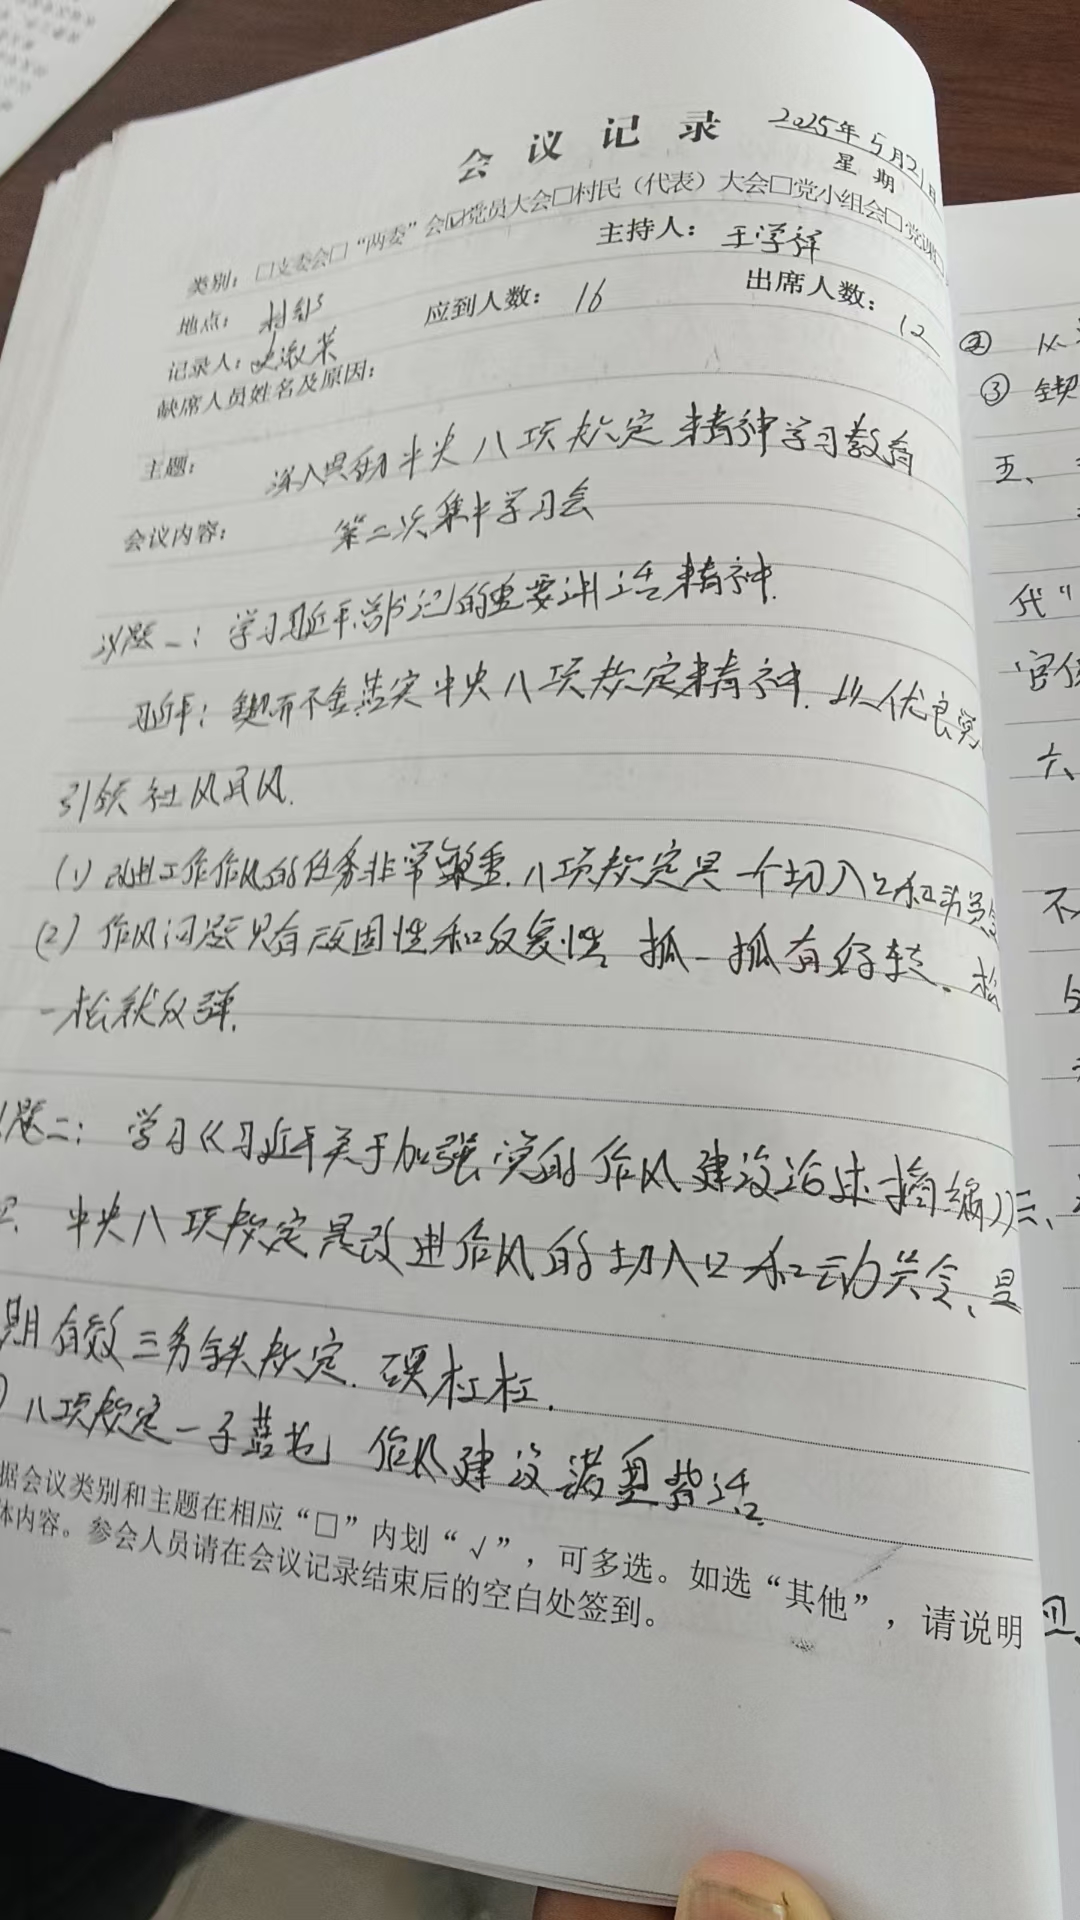 会议记录
2025年5月21日
星期
类别：□支委会□“两委”会☑党员大会□村民（代表）大会□党小组会□党课□
主持人：王学祥
地点：村部
应到人数：16
出席人数：12
记录人：
缺席人员姓名及原因：
主题：深入贯彻中央八项规定精神学习教育
第二次集中学习会
会议内容：
议题一：学习习近平总书记的重要讲话精神.
习近平：锲而不舍落实中央八项规定精神.以优良党
引领社风民风.
(1) 改进工作作风的任务非常繁重.八项规定是一个切入口和动员令
(2) 作风问题具有顽固性和反复性，抓一抓有好转、松
一松就反弹.
题二：学习《习近平关于加强党的作风建设论述摘编》三、
中央八项规定是改进作风的切入口和动员令、是
期有效
铁规定.硬杠杠.
八项规定一子
作风建设
据会议类别和主题在相应“□”内划“√”，可多选。如选“其他”，请说明
体内容。参会人员请在会议记录结束后的空白处签到。
②
从
③ 锲
五、
代“
官僚
六、
不
四、